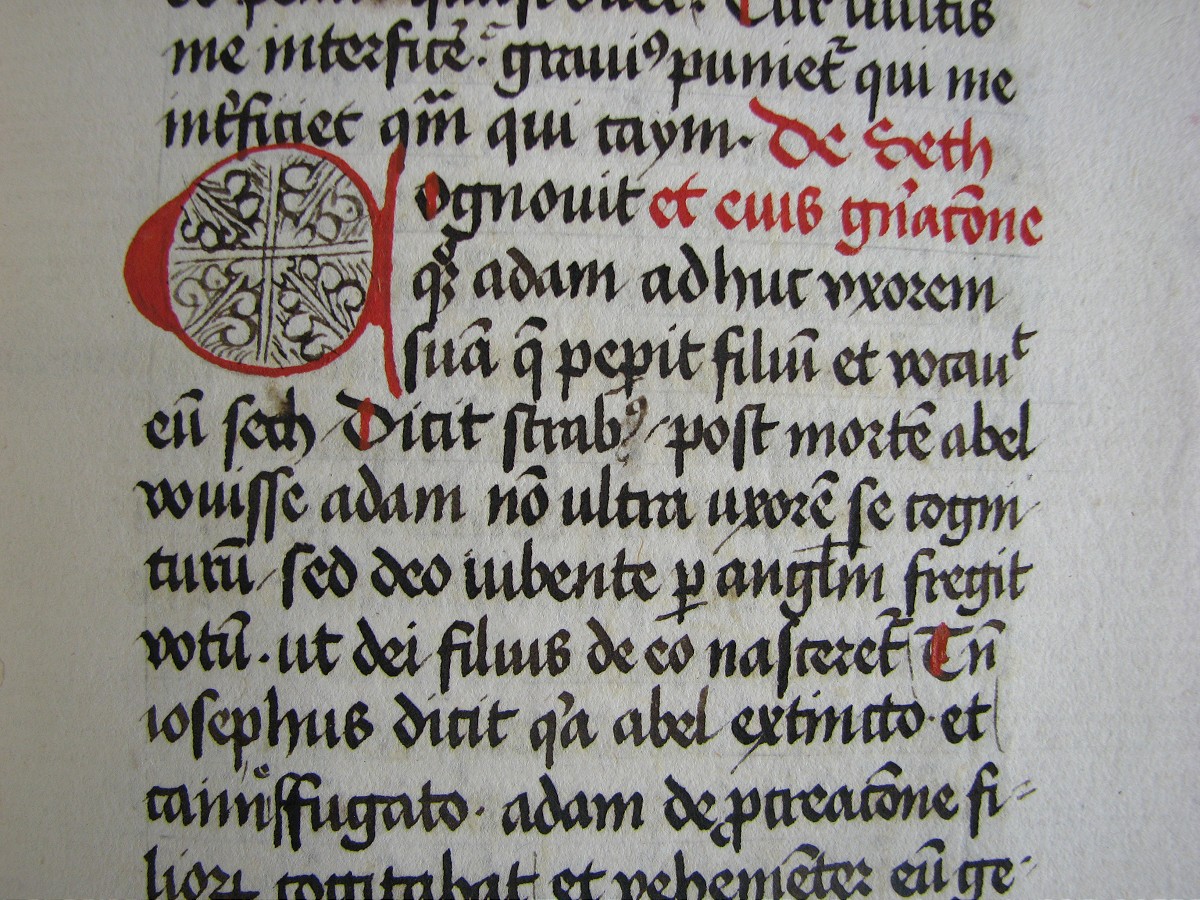 Cur vultis
me interficẽ. graui⁹ puniet᷑ qui me
int̾ficiet qm̃ qui caym. De Seth
Cognouit et eius gn̾ac̃one
adam adhuc vxorem
suã q̃ peꝑit filiũ et vocauᵗ
eũ seth Dicit strab⁹ / post mortẽ abel
vouisse adam nõ ultra uxorẽ se cogni
turũ / sed deo iubente ꝑ angl̃m fregit
votũ. ut dei filius de eo nasceret᷑ Tñ
iosephus dicit q̾a abel extincto. et
caim effugato. adam de ꝓcreac̃one fi-
lioꝝ cogitabat et vehemẽter eũ ge-